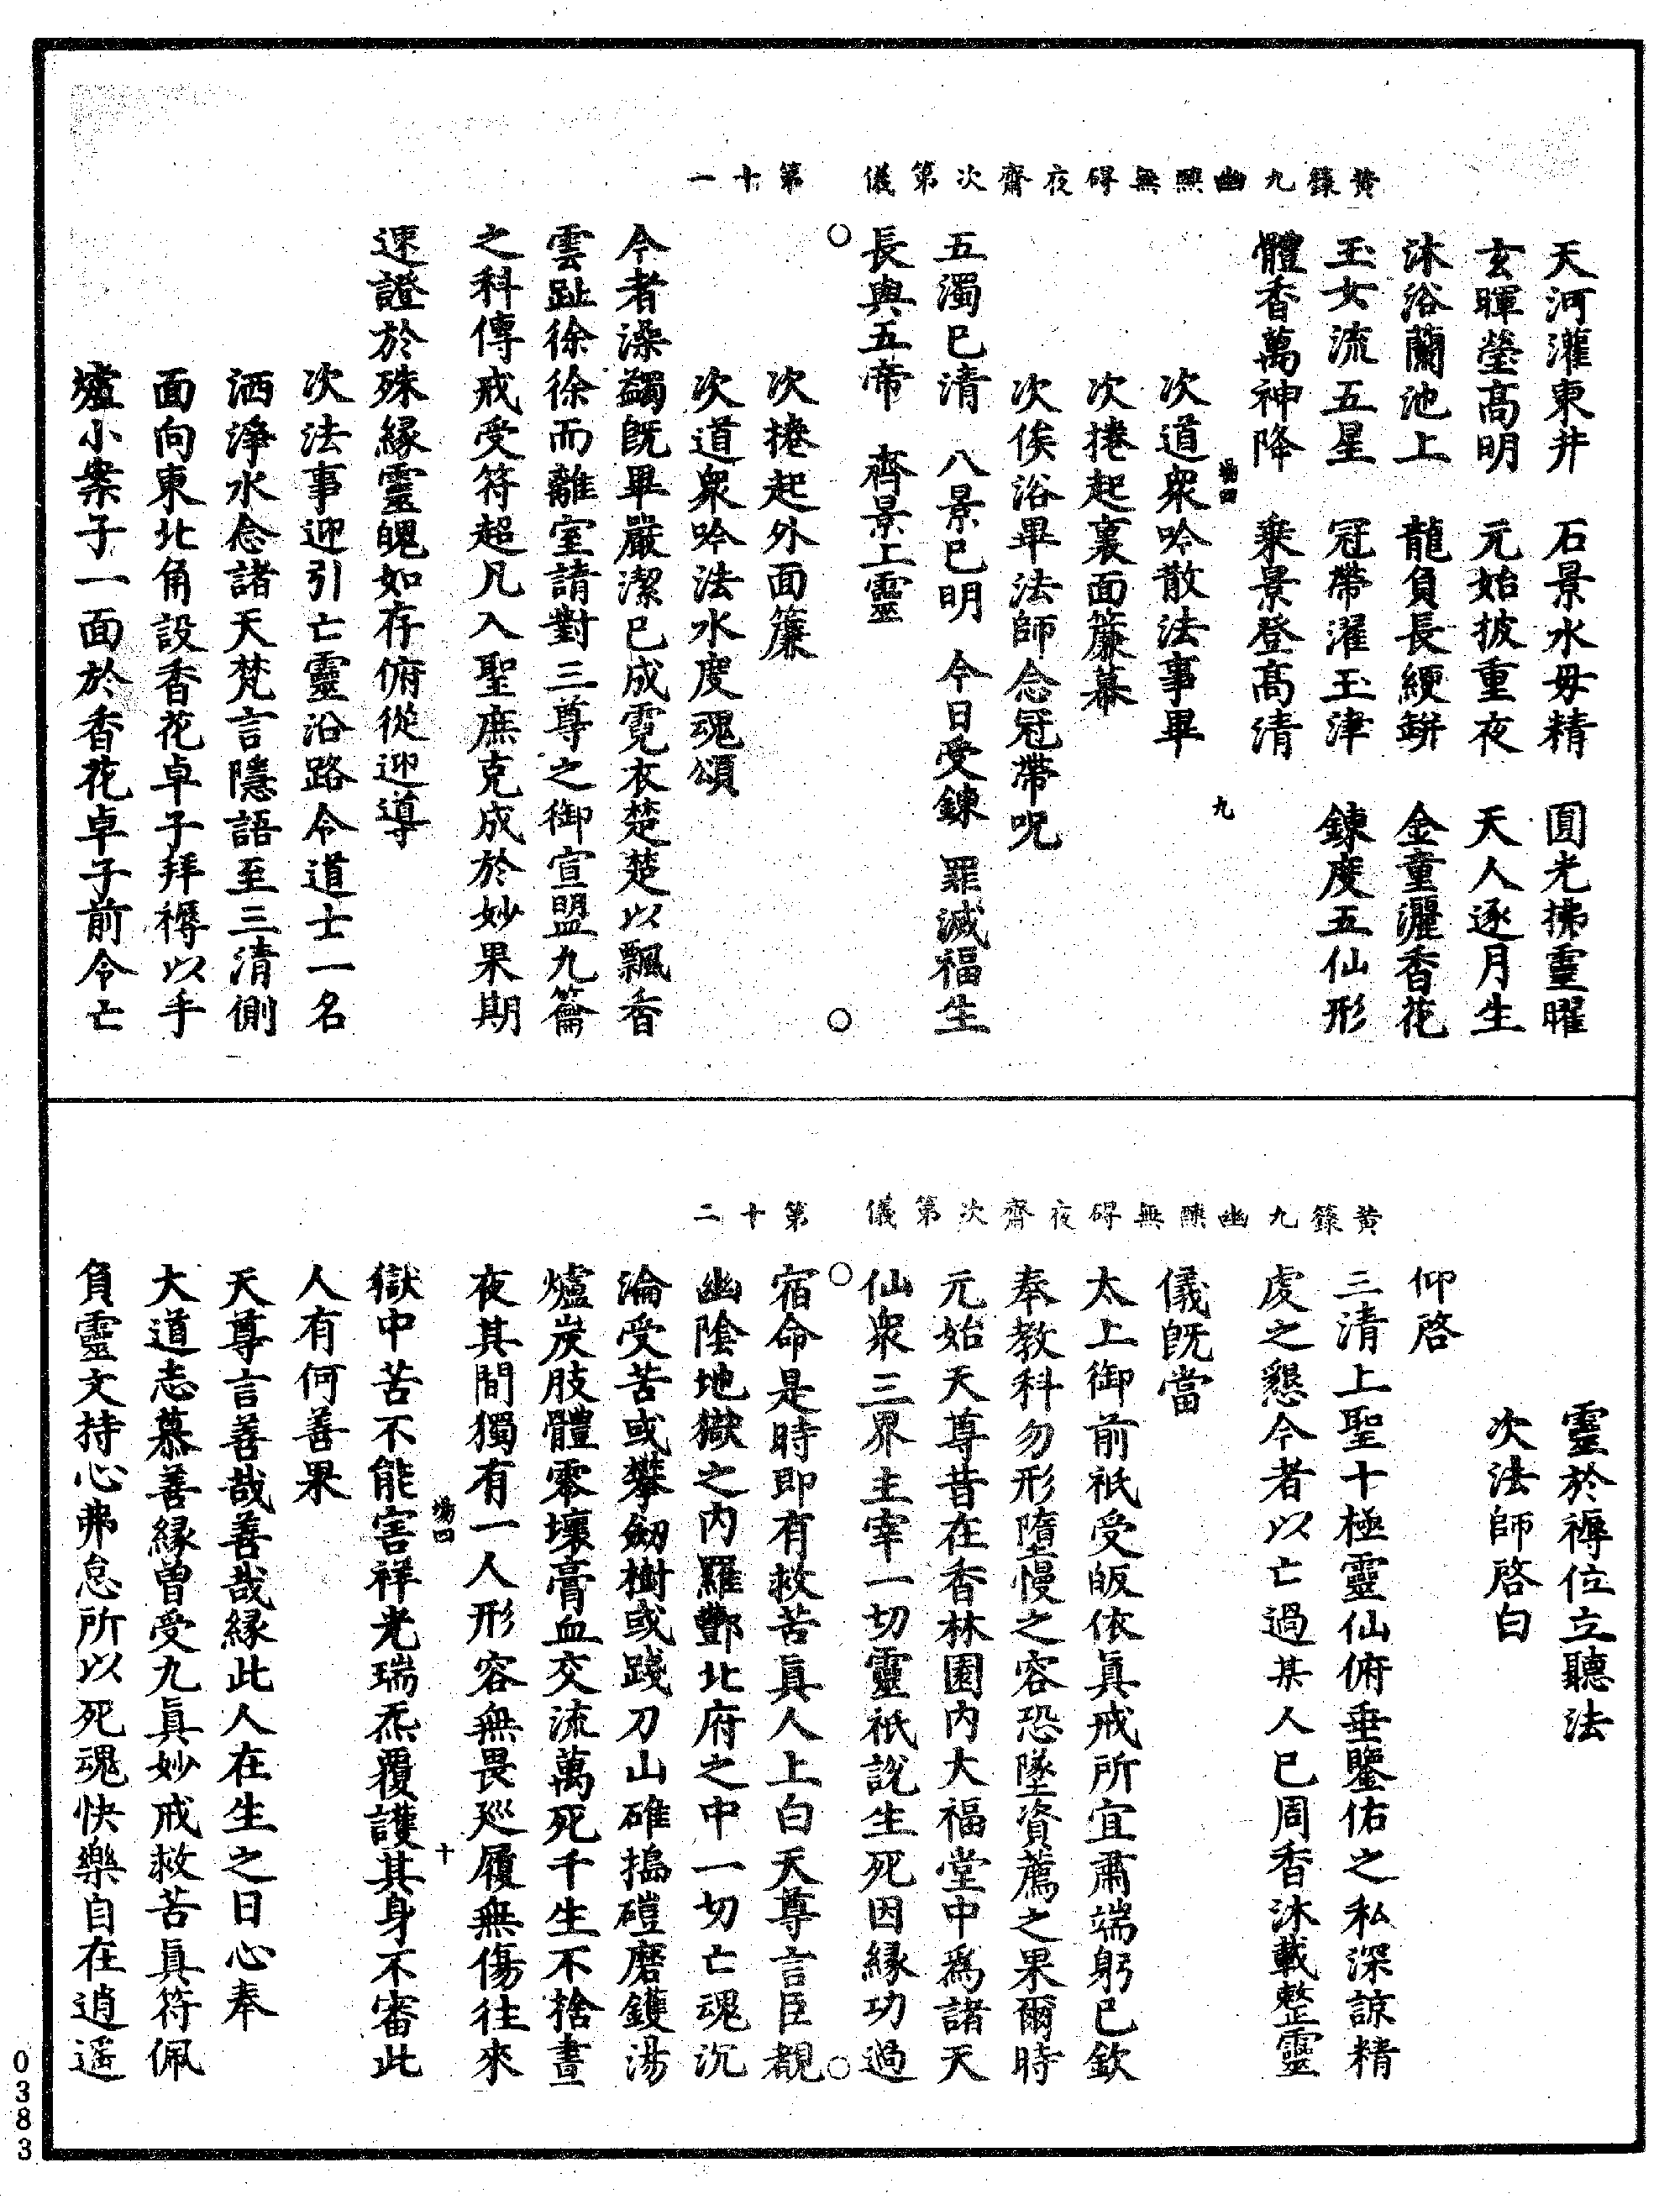 黃籙九幽醮無碍夜齋次第儀　第十一
天河灌東井　石景水母精　圓光拂靈曜
玄暉瑩高明　元始披重夜　天人逐月生
沐浴蘭池上　龍負長綆缾　金童灑香花
玉女流五星　冠帶濯玉津　鍊度五仙形
體香萬神降　乗景登高清
場四　九
次道衆吟散法事畢
次捲起裏面簾幕
次俟浴畢法師念冠帶呪
五濁已清　八景已明　今日受鍊　罪滅福生
長與五帝　齊景上靈
次捲起外面簾
次道衆吟法水度魂頌
今者澡蠲既畢嚴潔已成霓衣楚楚以飄香
雲趾徐徐而離室請對三尊之御宣盟九籥
之科傳戒受符超凡入聖庶克成於妙果期
速證於殊緣靈魄如存俯從迎導
次法事迎引亡靈沿路令道士一名
洒淨水念諸天梵言隱語至三清側
面向東北角設香花卓子拜褥以手
爐小案子一面於香花卓子前令亡
黃籙九幽醮無碍夜齋次第儀　第十二
靈於褥位立聽法
次法師啓白
仰啓
三清上聖十極靈仙俯垂鑒佑之私深諒精
虔之懇今者以亡過某人已周香沐載整靈
儀既當
太上御前祇受皈依真戒所宜肅端躬已欽
奉教科勿形墮慢之容恐墜資薦之果爾時
元始天尊昔在香林園内大福堂中爲諸天
仙衆三界主宰一切靈祇說生死因緣功過
宿命是時即有救苦真人上白天尊言臣觀
幽陰地獄之内羅酆北府之中一切亡魂沉
淪受苦或攀劒樹或踐刀山碓搗磑磨鑊湯
爐炭肢體零壞膏血交流萬死千生不捨晝
夜其間獨有一人形容無畏巡履無傷往來
場四　十
獄中苦不能害祥光瑞炁覆護其身不審此
人有何善果
天尊言善哉善哉緣此人在生之日心奉
大道志慕善緣曾受九真妙戒救苦真符佩
負靈文持心弗怠所以死魂快樂自在逍遥
0383